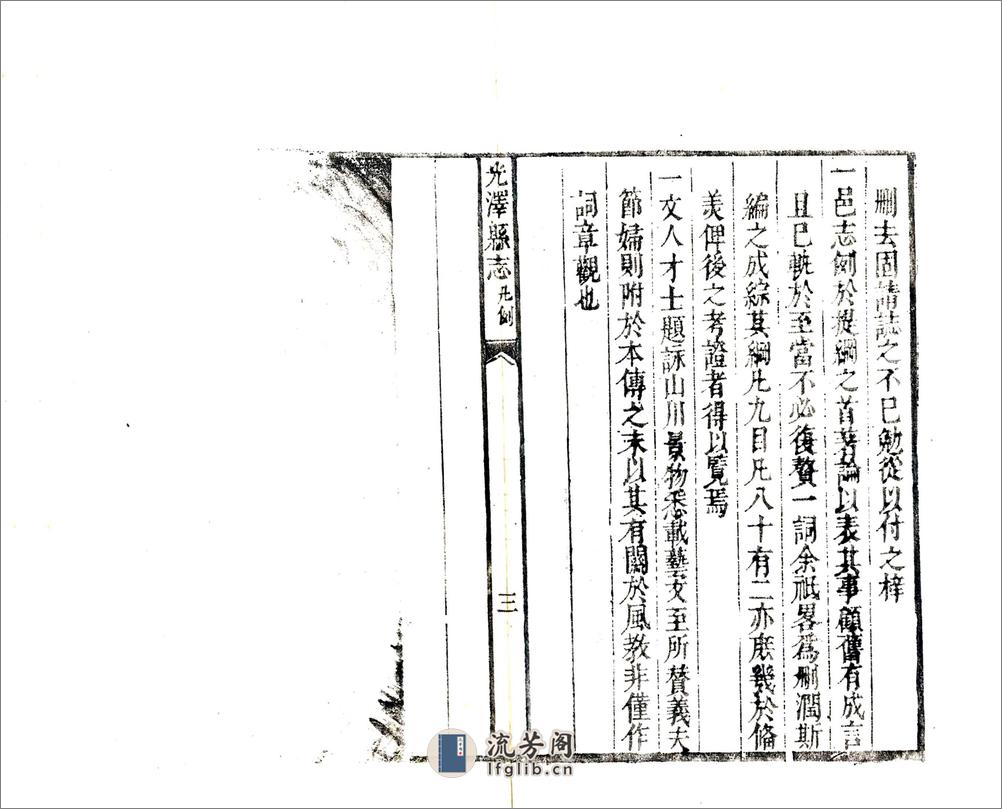 刪去固請誌之不已勉從以付之梓
一邑志例於提綱之首著論以表其事顧舊有成言
且已軌於至當不必復贅一詞余祗畧為刪潤斯
編之成綜其綱凡九目凡八十有二亦庶幾於俻
美俾後之考證者得以覧焉
一文人才士題詠山川景物悉載藝文至所賛義夫
節婦則附於本傳之末以其有關於風教非僅作
詞章觀也
光澤縣志 凡例 三
流芳阁
lfglib.cn